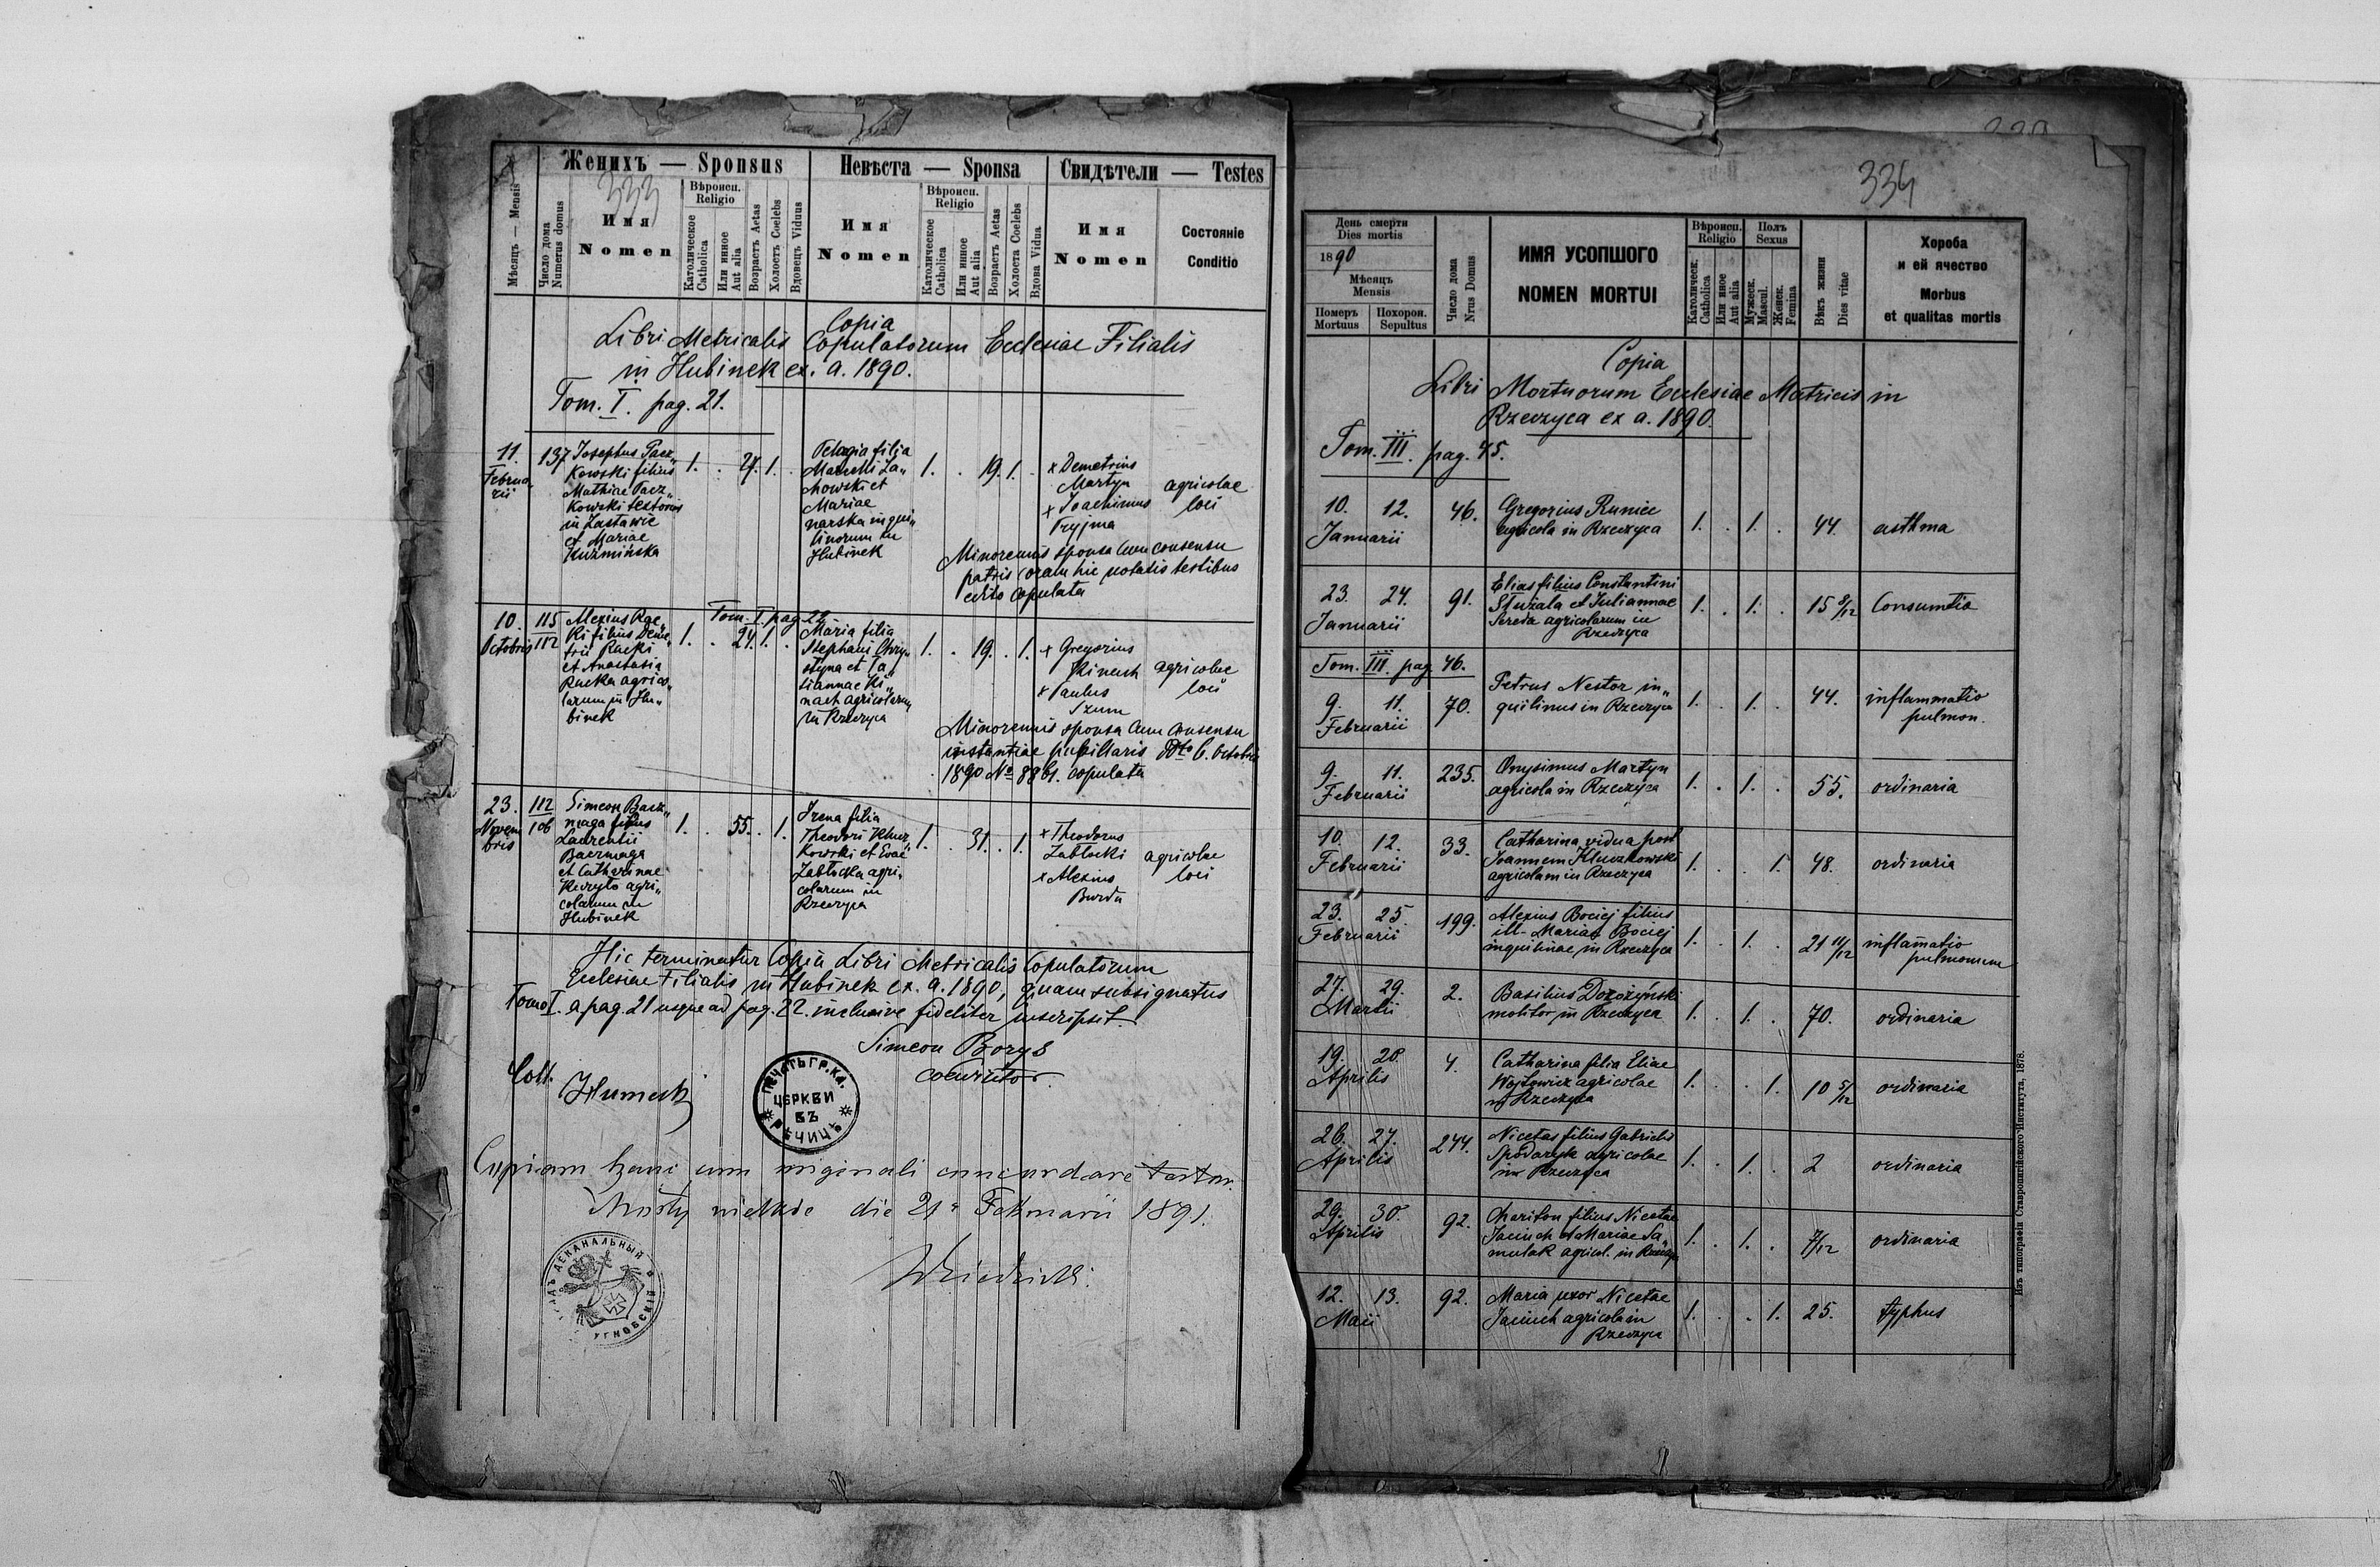 333
Женихъ — Sponsus
Невѣста — Sponsa
Свидѣтели — Testes
Мѣсяцъ — Mensis
Число дома
Numerus domus
Имя
Nomen
Вѣроисп.
Religio
Католическое
Catholica
Или инное
Aut alia
Возрастъ Aetas
Холостъ Coelebs
Вдовецъ Viduus
Имя
Nomen
Вѣроисп.
Religio
Католическое
Catholica
Или инное
Aut alia
Возрастъ Aetas
Холоста Coelebs
Вдова Vidua
Имя
Nomen
Состояніе
Conditio
Copia
Libri Metricalis Copulatorum Ecclesiae Filialis
in Hubinek ex. a. 1890.
Tom. I. pag. 21.
11.
Februa
rii
137
Josephus Pacz„
kowski filius
Mathiae Pacz„
kowski textoris
in Zastawie
et Mariae
Kuźmińska
1. . 1. .
Pelagia filia
Marcelli
chowski et
Mariae
in Hubinek
1. . 19. 1. .
x Demetrius
Martyn
x Joachimus
Tryjma
agricolae
loci
Minorennis sponsa cum consensu
patris coram hic notatis testibus
edito copulata
Tom. I. pag. 22
10.
Octobris
115
112
Alexius Rac„
ki filius Deme„
trii Racki
et Anastasia
Racka agrico„
larum in Hu„
binek
1. . 24. 1. .
Maria filia
Stephani Chry„
styna et Ta„
tiannae Ki„
nach agricolarum
in Rzeczyca
1. . 19. . 1.
x Gregorius
Kinach
x Paulus
Szum
agricolae
loci
Minorennis sponsa cum consensu
instantiae pupillaris ddto 6. Octobris
1890 No 8861. copulata
23.
Novem
bris
112
106
Simeon Bacz„
maga filius
Laurentii
Baczmaga
et Catharinae
agri„
colarum in
Hubinek
1. . 55. . 1.
Irena filia
Theodori
kowski et Evae
Zabłocka agri„
colarum in
Rzeczyca
1. . 31. . 1.
x Theodorus
Zabłocki
x Alexius
Burda
agricolae
loci
Hic terminatur Copia Libri Metricalis Copulatorum
Ecclesiae Filialis in Hubinek ex. a. 1890, quam subsignatus
Tomo I. a pag. 21 usque ad pag. 22. inclusive fideliter inscripsit.
Simeon Borys
cooperator.
Coll.
ПЕЧАТЬ ГР. КА.
ЦЕРКВИ
ВЪ
РѢЧИЦѢ
Copiam hanc cum originali concordare testor.
Mosty wielkie die 21 Februarii 1891.
ДЕКАНАЛЬНЫЙ
УГНОВСКІЙ
334
День смерти
Dies mortis
1890
Мѣсяцъ
Mensis
Померъ
Mortuus
Похорон.
Sepultus
Число дома
Nrus Domus
ИМЯ УСОПШОГО
NOMEN MORTUI
Вѣроисп.
Religio
Католическ.
Catholica
Или иное
Aut alia
Полъ
Sexus
Мужеск.
Mascul.
Женск.
Femina
Вѣкъ жизни
Dies vitae
Хороба
и ей ячество
Morbus
et qualitas mortis
Copia
Libri Mortuorum Ecclesiae Matricis in
Rzeczyca ex a. 1890.
Tom. III. pag. 45.
10. 12.
Januarii
46.
Gregorius Runiec
agricola in Rzeczyca
1. . 1. . 44. asthma
23. 24.
Januarii
91.
Elias filius Constantini
Służała et Juliannae
Sereda agricolarum in
Rzeczyca
1. . 1. . 15 8/12 Consumtio
Tom. III. pag. 46.
9. 11.
Februarii
70.
Petrus Nestor in„
quilinus in Rzeczyca
1. . 1. . 44. inflammatio
pulmon.
9. 11.
Februarii
235.
Onysimus Martyn
agricola in Rzeczyca
1. . 1. . 55. ordinaria
10. 12.
Februarii
33.
Catharina vidua post
Joannem Kluczkowski
agricolam in Rzeczyca
1. . . 1. 48. ordinaria
23. 25.
Februarii
199.
Alexius Bociej filius
ill. Mariae Bociej
inquilinae in Rzeczyca
1. . 1. . 21 11/12 inflammatio
pulmonum
27. 29.
Martii
2.
Basilius Dorożyński
molitor in Rzeczyca
1. . 1. . 70. ordinaria
19. 20.
Aprilis
4.
Catharina filia Eliae
Wojtowicz agricolae
in Rzeczyca
1. . . 1. 10 5/12 ordinaria
26. 27.
Aprilis
244.
Nicetas filius Gabrielis
Spodaryk agricolae
in Rzeczyca
1. . 1. . 2 ordinaria
29. 30.
Aprilis
92.
Chariton filius Nicetae
Jaciuch et Mariae Sa„
mulak agricol. in Rzeczyca
1. . 1. . 7/12 ordinaria
12. 13.
Maii
92.
Maria uxor Nicetae
Jaciuch agricola in
Rzeczyca
1. . . 1. 25. typhus
Изъ типографіи Ставропигійского Института, 1878.